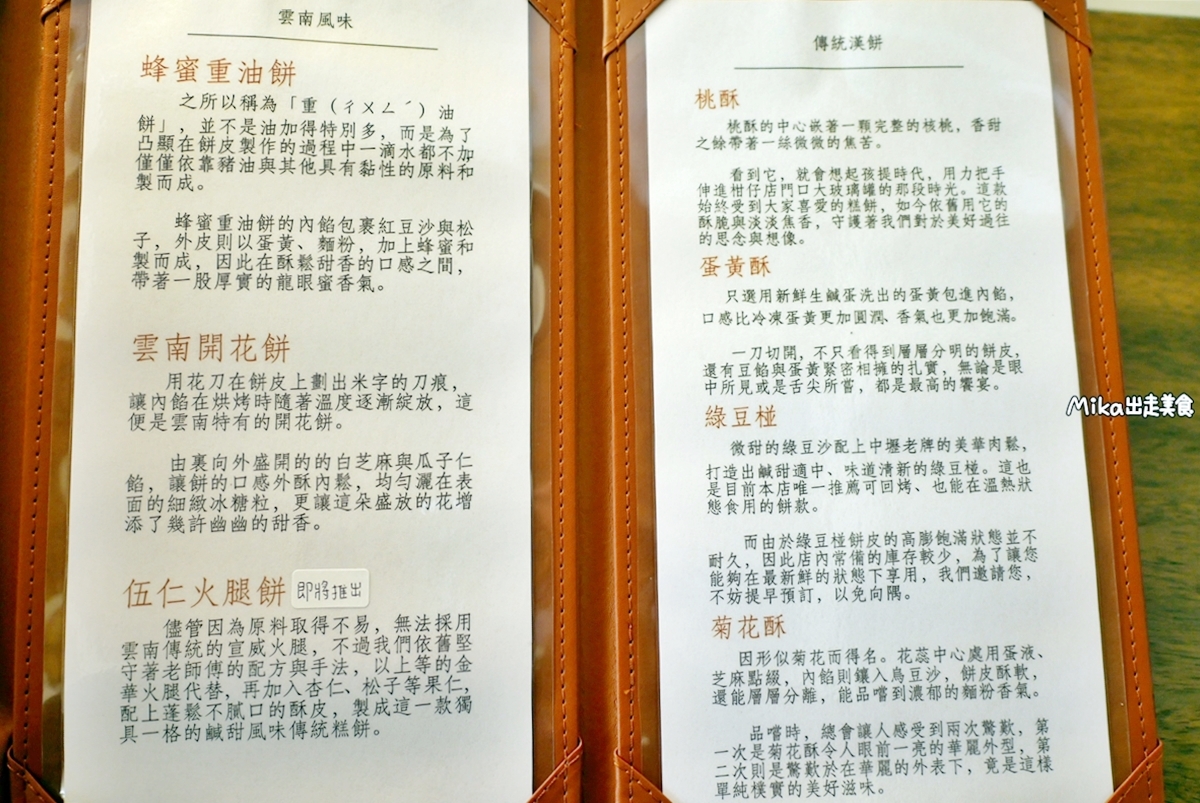 雲南風味
蜂蜜重油餅
之所以稱為「重（ㄔㄨㄥˊ）油
餅」，並不是油加得特別多，而是為了
凸顯在餅皮製作的過程中一滴水都不加
僅僅依靠豬油與其他具有黏性的原料和
製而成。
蜂蜜重油餅的內餡包裹紅豆沙與松
子，外皮則以蛋黃、麵粉，加上蜂蜜和
製而成，因此在酥鬆甜香的口感之間，
帶著一股厚實的龍眼蜜香氣。
雲南開花餅
用花刀在餅皮上劃出米字的刀痕，
讓內餡在烘烤時隨著溫度逐漸綻放，這
便是雲南特有的開花餅。
由裏向外盛開的的白芝麻與瓜子仁
餡，讓餅的口感外酥內鬆，均勻灑在表
面的細緻冰糖粒，更讓這朵盛放的花增
添了幾許幽幽的甜香。
伍仁火腿餅 即將推出
儘管因為原料取得不易，無法採用
雲南傳統的宣威火腿，不過我們依舊堅
守著老師傅的配方與手法，以上等的金
華火腿代替，再加入杏仁、松子等果仁，
配上蓬鬆不膩口的酥皮，製成這一款獨
具一格的鹹甜風味傳統糕餅。
傳統漢餅
桃酥
桃酥的中心嵌著一顆完整的核桃，香甜
之餘帶著一絲微微的焦苦。
看到它，就會想起孩提時代，用力把手
伸進柑仔店門口大玻璃罐的那段時光。這款
始終受到大家喜愛的糕餅，如今依舊用它的
酥脆與淡淡焦香，守護著我們對於美好過往
的思念與想像。
蛋黃酥
只選用新鮮生鹹蛋洗出的蛋黃包進內餡，
口感比冷凍蛋黃更加圓潤、香氣也更加飽滿。
一刀切開，不只看得到層層分明的餅皮，
還有豆餡與蛋黃緊密相擁的扎實，無論是眼
中所見或是舌尖所嘗，都是最高的饗宴。
綠豆椪
微甜的綠豆沙配上中壢老牌的美華肉鬆，
打造出鹹甜適中、味道清新的綠豆椪。這也
是目前本店唯一推薦可回烤、也能在溫熱狀
態食用的餅款。
而由於綠豆椪餅皮的高膨飽滿狀態並不
耐久，因此店內常備的庫存較少，為了讓您
能夠在最新鮮的狀態下享用，我們邀請您，
不妨提早預訂，以免向隅。
菊花酥
因形似菊花而得名。花蕊中心處用蛋液、
芝麻點綴，內餡則鑲入烏豆沙，餅皮酥軟，
還能層層分離，能品嚐到濃郁的麵粉香氣。
品嚐時，總會讓人感受到兩次驚歎，第
一次是菊花酥令人眼前一亮的華麗外型，第
二次則是驚歎於在華麗的外表下，竟是這樣
單純樸實的美好滋味。
Mika出走美食